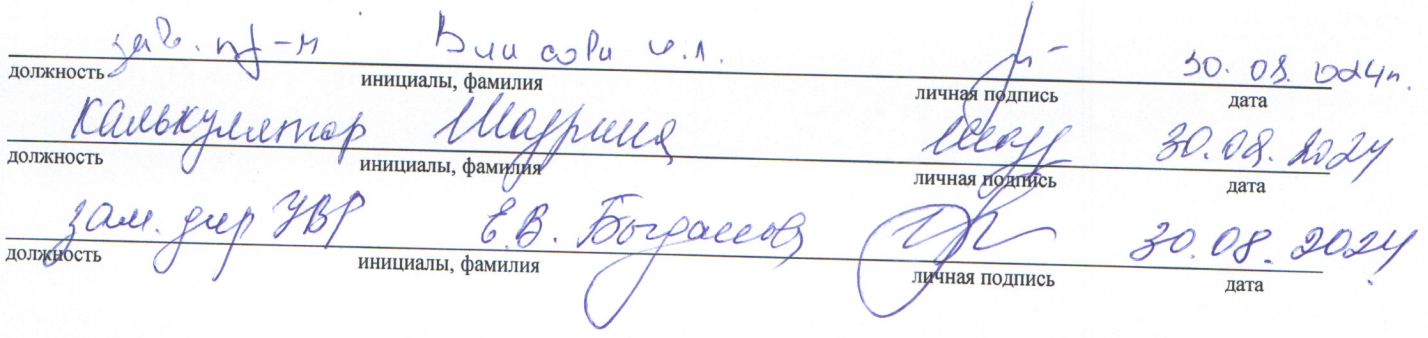 зав. пр-м 30. 08. 2024г.
должность инициалы, фамилия личная подпись дата
Калькулятор Шаурина 30.08.2024
должность инициалы, фамилия личная подпись дата
зам. дир УВР Е.В. Богданова 30.08.2024
должность инициалы, фамилия личная подпись дата